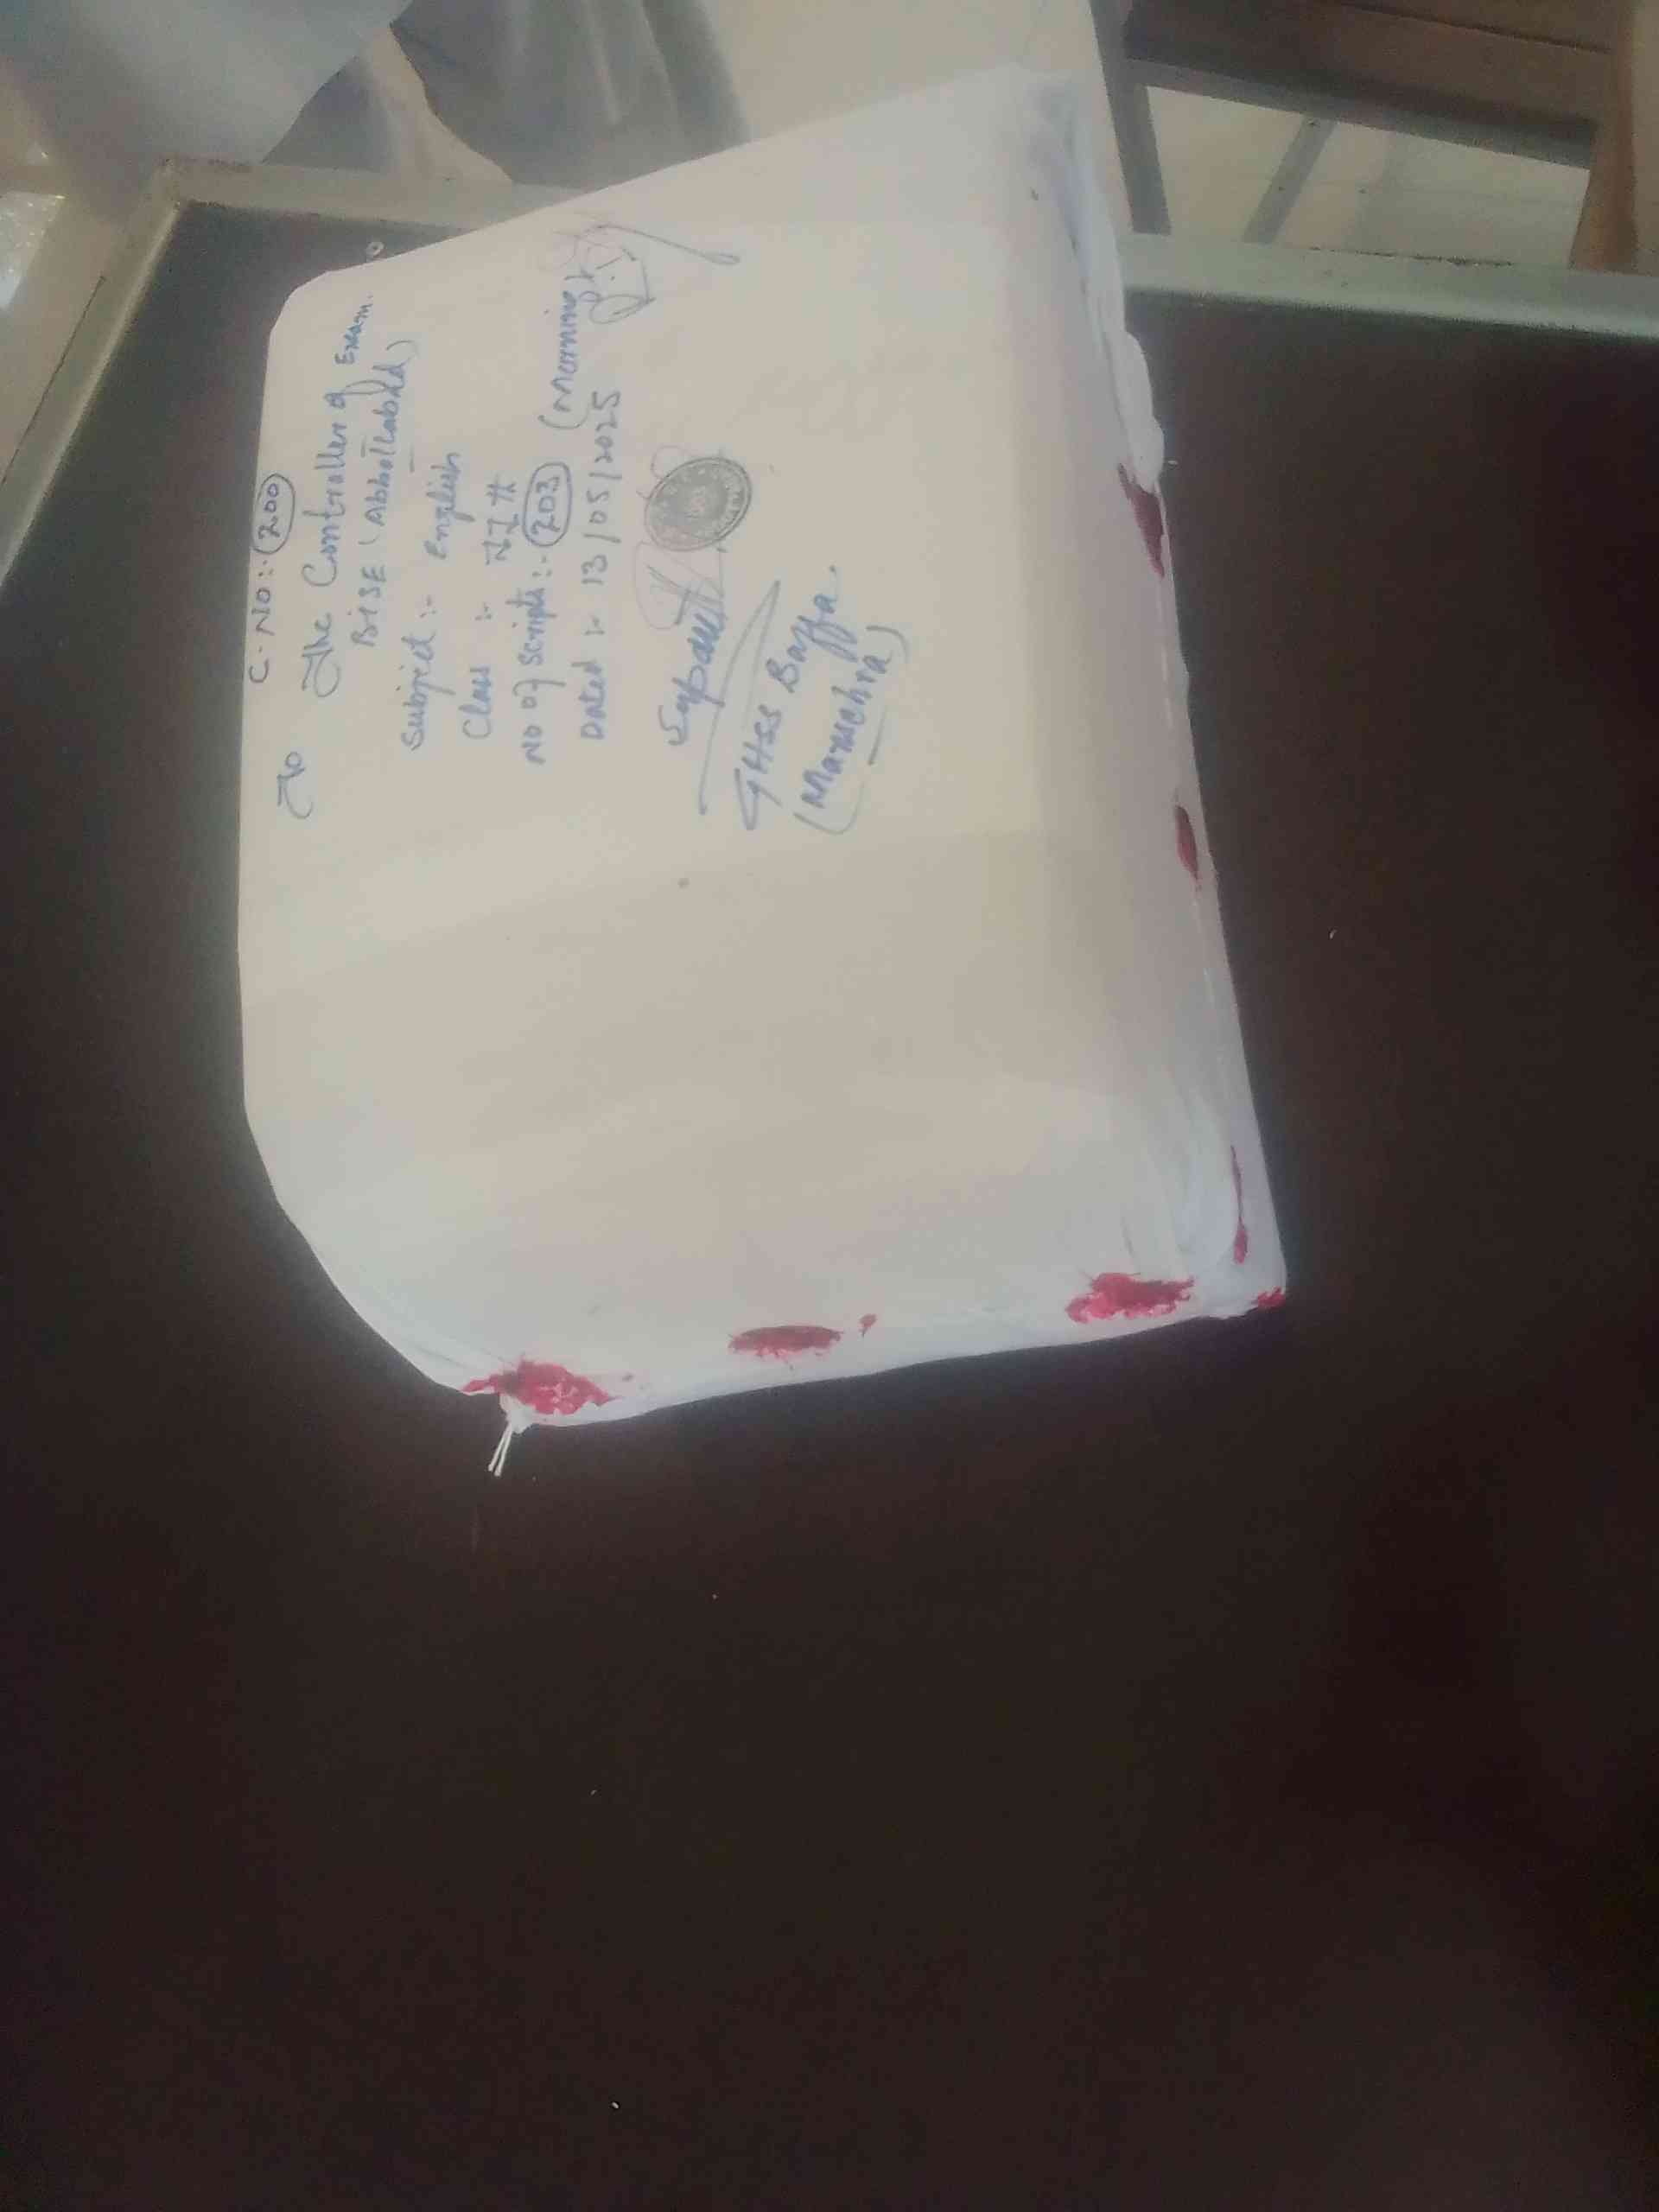 C. NO:- 200
To
The Controller of Exam.
BISE (Abbottabad)
Subject :- English
Class :-
NO Of Scripts :- 203 (Morning)
Dated :- 13/05/2025
GHSS Baffa.
(Mansehra)